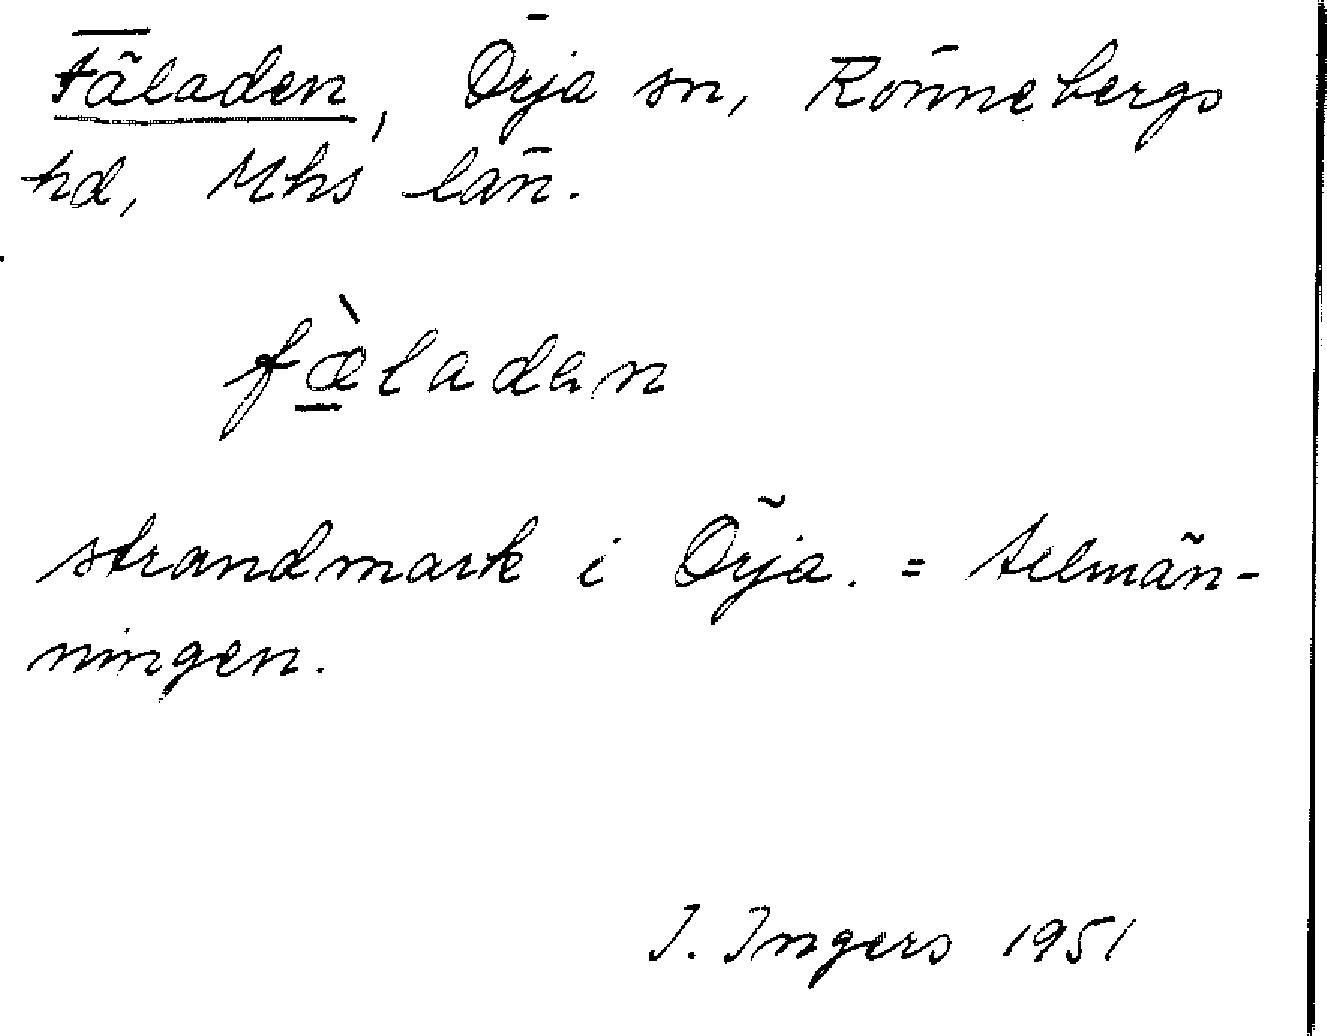 Fäladen, Örja sn, Rönnebergs
hd, Mhs län.
fæ̠̀ladan
strandmark i Örja. = tilmän-
ningen.
I. Ingers 1951